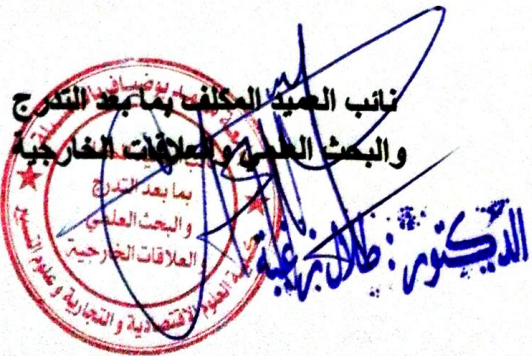 نائب العميد المكلف بما بعد التدرج
والبحث العلمي والعلاقات الخارجية
بما بعد التدرج
والبحث العلمي
العلاقات الخارجية
العلوم الاقتصادية والتجارية وعلوم التسيير
الدكتور: طلال زغبة